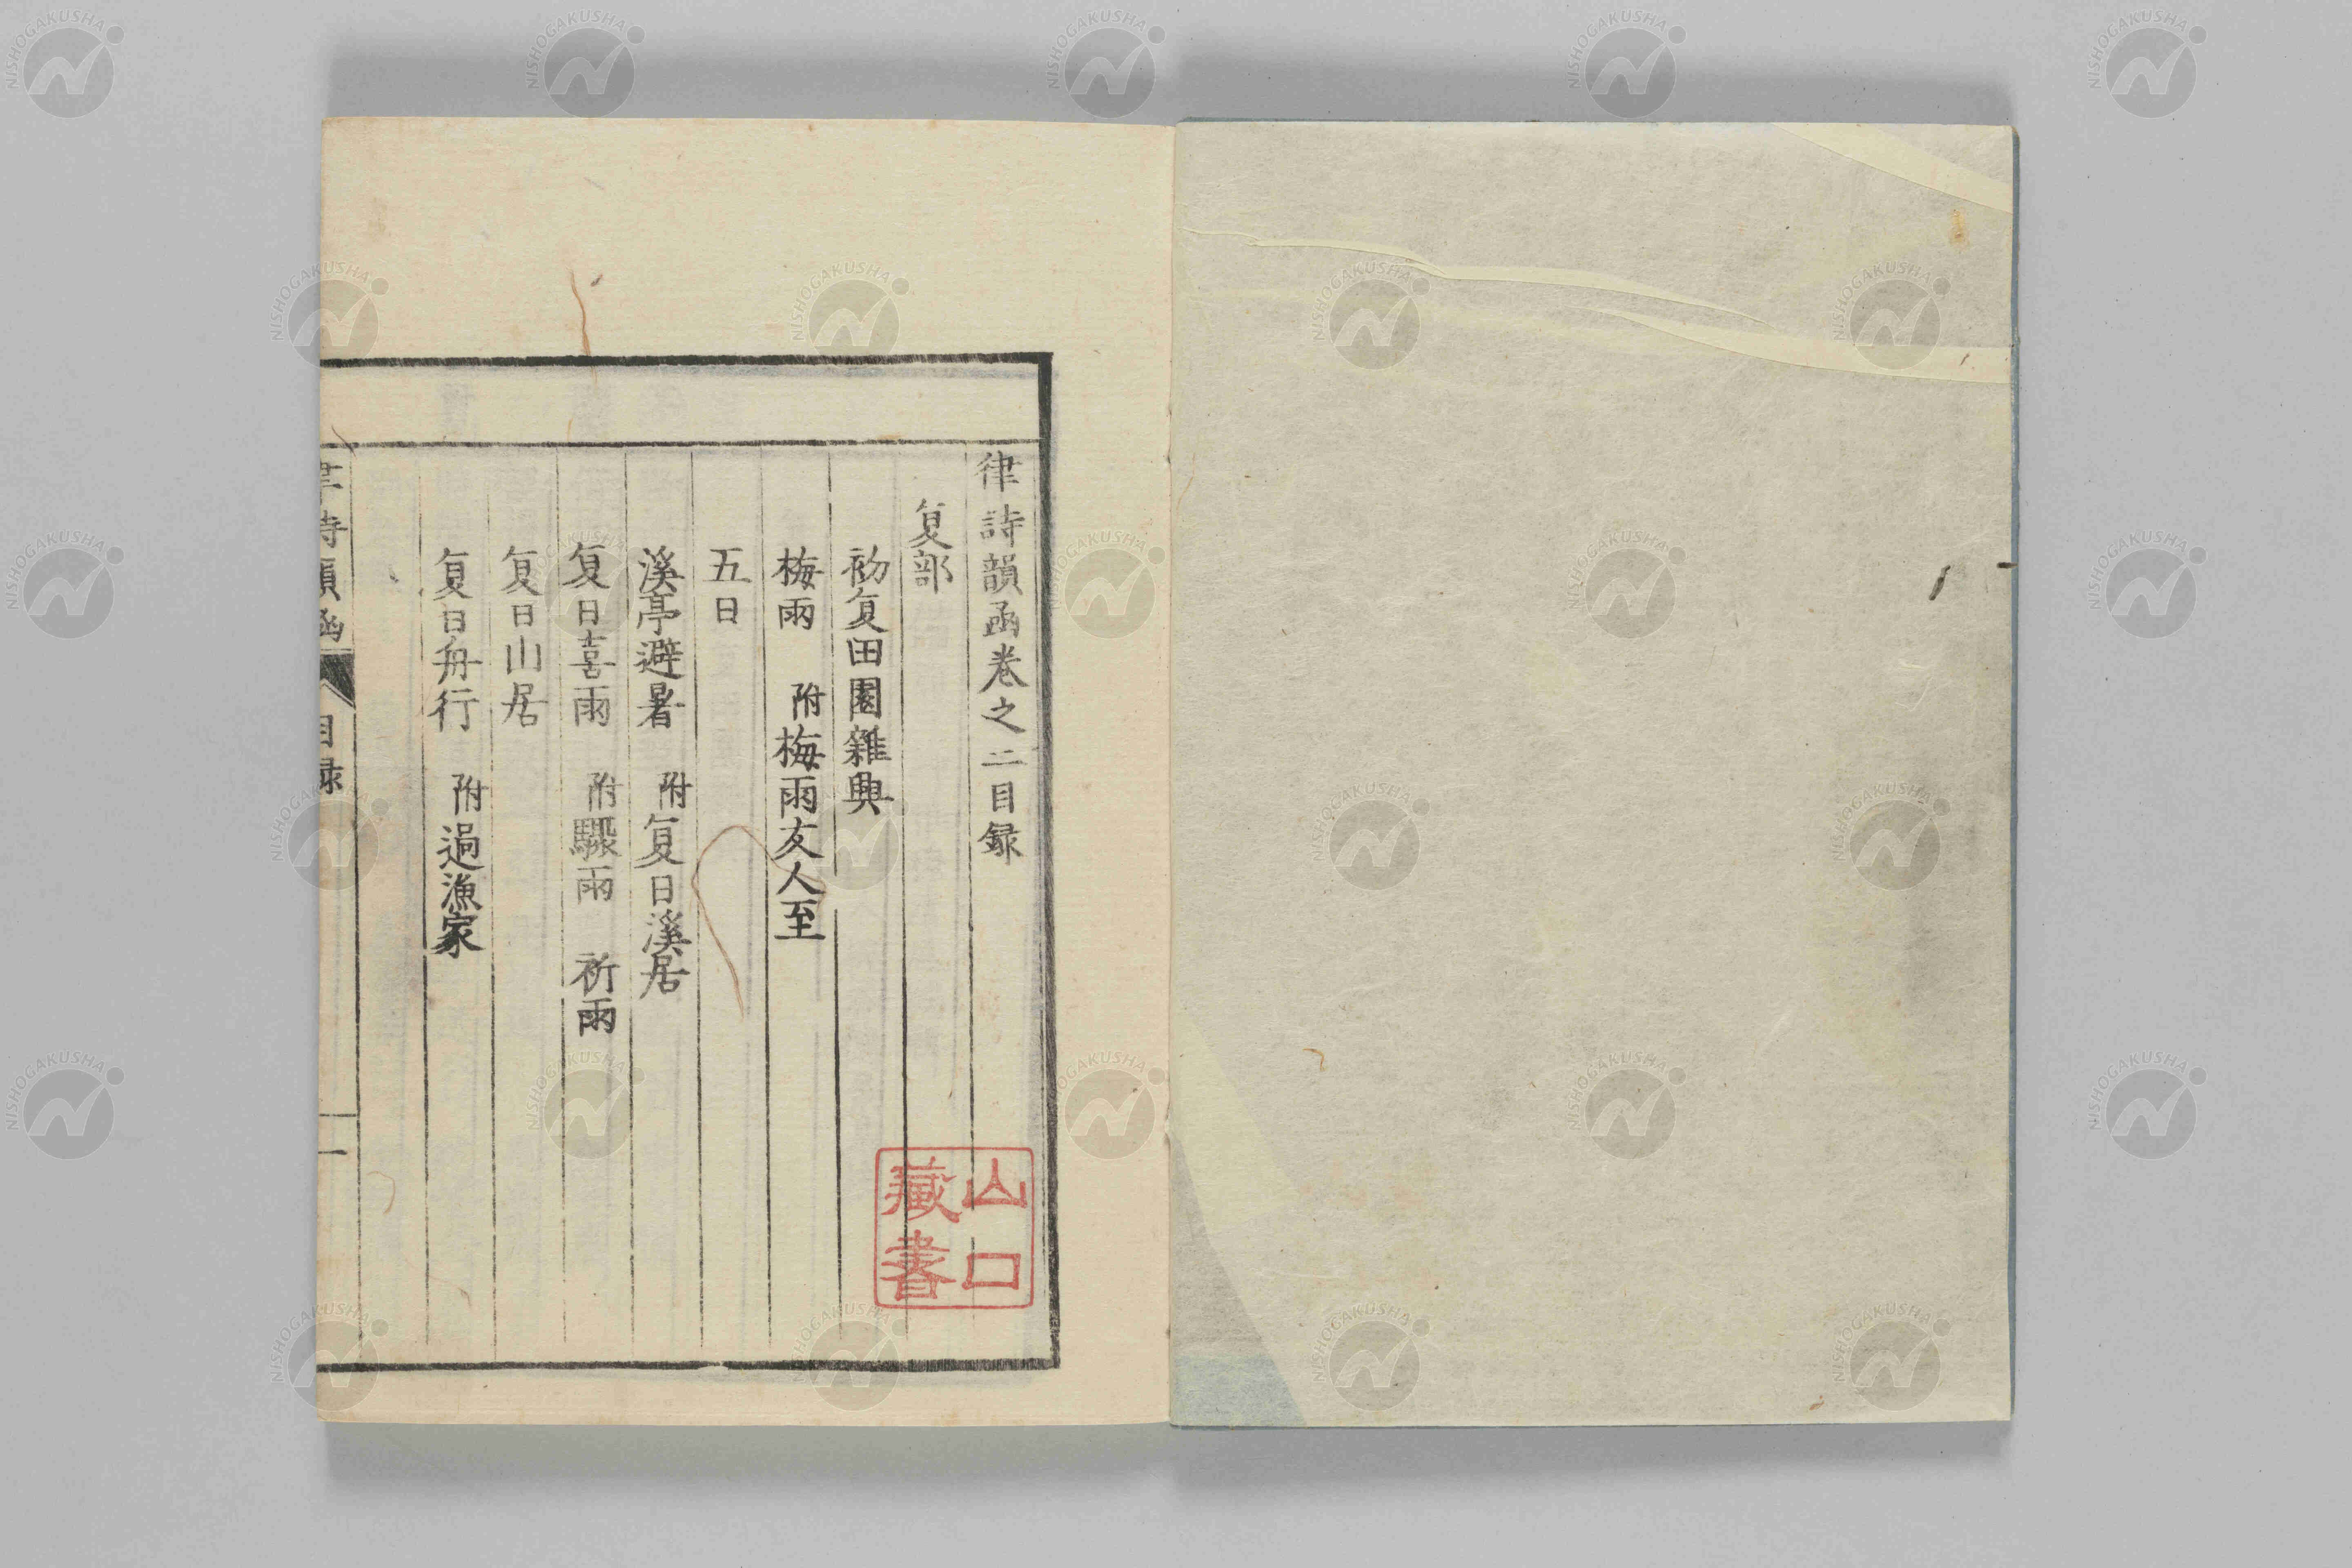 律詩韻函卷之二目録
夏部
初夏田園雜興
梅雨 附梅雨友人至
五日
溪亭避暑 附夏日溪居
夏日喜雨 附驟雨 祈雨
夏日山居
夏日舟行 附過漁家
目録
一
山口
藏書
NISHOGAKUSHA